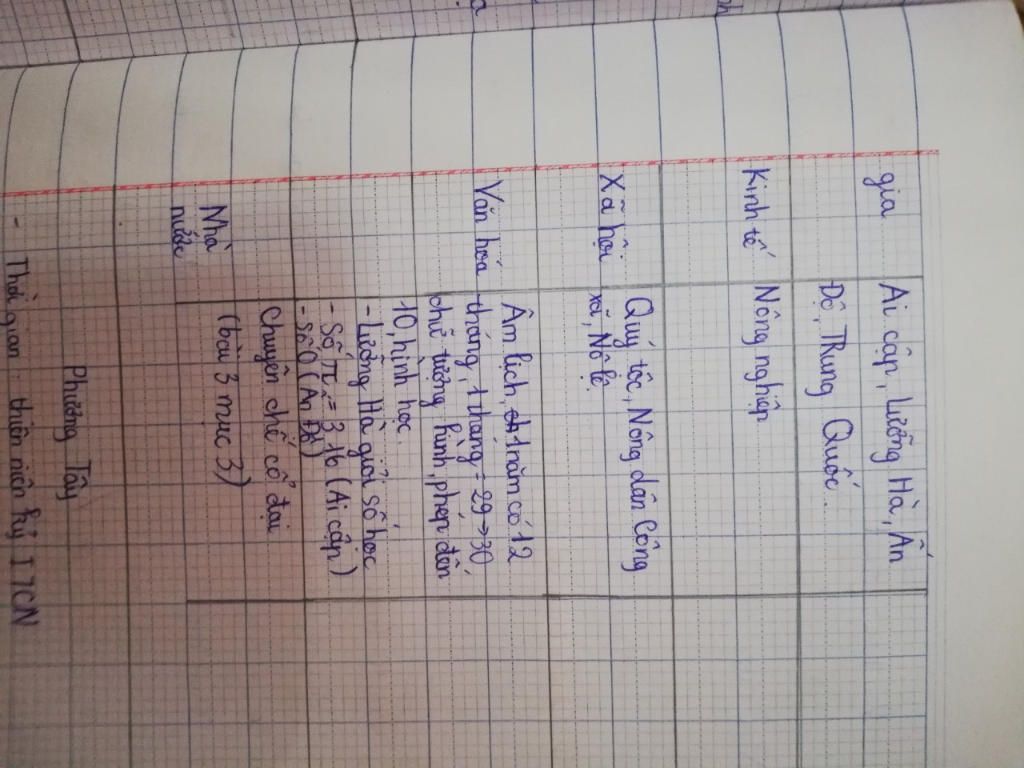 gia Ai cập, Lưỡng Hà, Ấn
Độ, Trung Quốc...
Kinh tế Nông nghiệp
Xã hội Quý tộc, Nông dân Công
xã, Nô lệ
Âm lịch, 1 năm có 12
Văn hóa tháng, 1 tháng = 29 → 30
chữ tượng hình, phép đếm
10, hình học
- Lưỡng Hà giỏi số học
- Số π = 3,16 (Ai cập)
- Số 0 (Ấn Độ)
Nhà nước Chuyên chế cổ đại
(bài 3 mục 3)
Phương Tây
- Thời gian: thiên niên kỷ I TCN